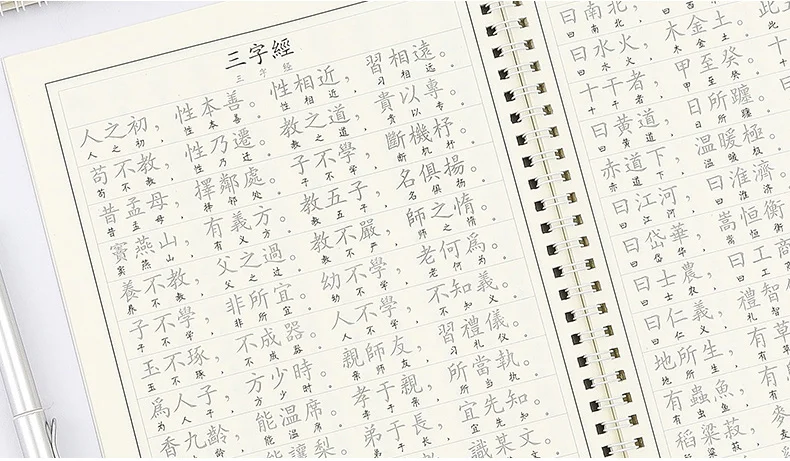 三字經
三字经
人之初，性本善。性相近，習相遠。
人之初，性本善。性相近，习相远。
苟不教，性乃遷。教之道，貴以專。
苟不教，性乃迁。教之道，贵以专。
昔孟母，擇鄰處。子不學，斷機杼。
昔孟母，择邻处。子不学，断机杼。
竇燕山，有義方。教五子，名俱揚。
窦燕山，有义方。教五子，名俱扬。
養不教，父之過。教不嚴，師之惰。
养不教，父之过。教不严，师之惰。
子不學，非所宜。幼不學，老何為。
子不学，非所宜。幼不学，老何为。
玉不琢，不成器。人不學，不知義。
玉不琢，不成器。人不学，不知义。
為人子，方少時。親師友，習禮儀。
为人子，方少时。亲师友，习礼仪。
香九齡，能溫席。孝于親，所當執。
香九龄，能温席。孝于亲，所当执。
能讓梨。弟于長，宜先知。
識某文。
曰南北，
曰南北，
曰水火，木金土。此
曰水火，木金土。
十干者，甲至癸。十
十干者，甲至癸。
曰黃道，日所躔。
曰黄道，日所躔。
赤道下，溫暖極。
赤道下，温暖极。
曰江河，曰淮濟。
曰江河，曰淮济。
曰岱華，嵩恒衡
曰岱华，嵩恒衡
曰士農，曰工商
曰士农，曰工商
曰仁義，禮智
曰仁义，礼智
地所生，有草
地所生，有草
有蟲魚，有鳥
有虫鱼，有
稻粱菽，麥